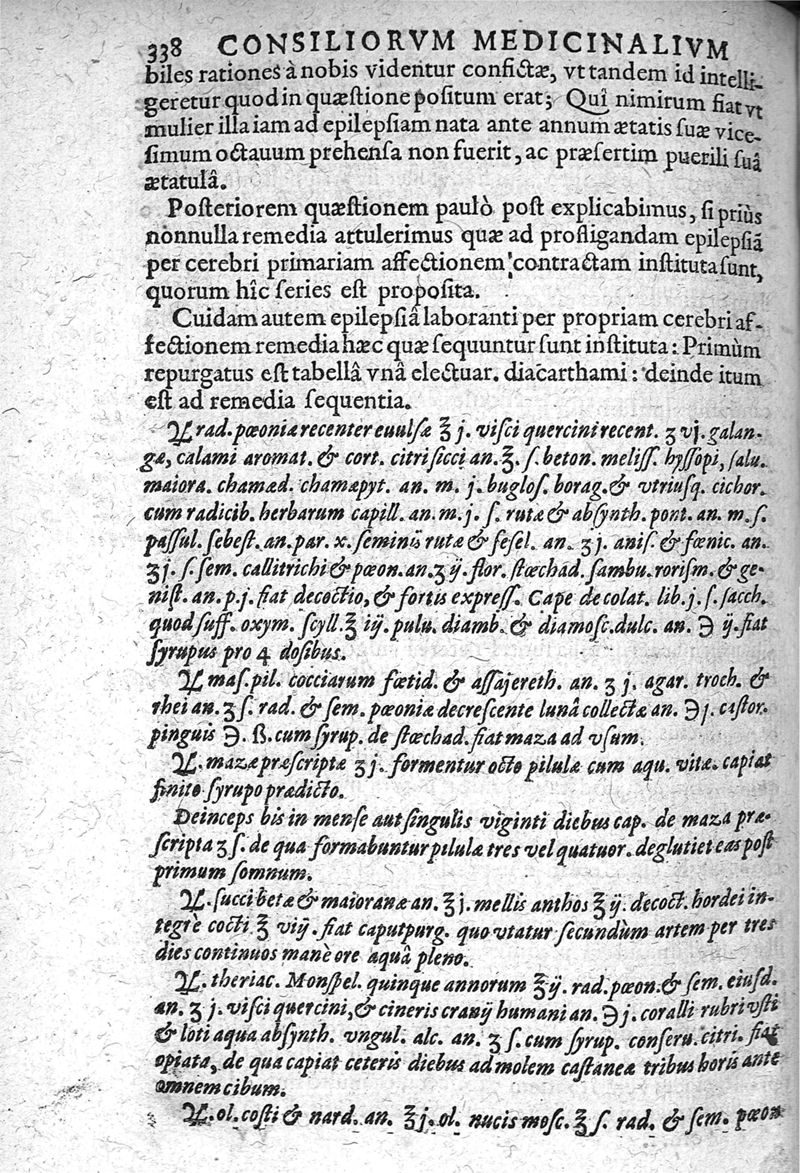 338 CONSILIORVM MEDICINALIVM
biles rationes à nobis videntur confictæ, vt tandem id intelli-
geretur quod in quæstione positum erat; Quî nimirum fiat vt
mulier illa iam ad epilepsiam nata ante annum ætatis suæ vice-
simum octauum prehensa non fuerit, ac præsertim puerili suâ
ætatulâ.
Posteriorem quæstionem paulò post explicabimus, si priùs
nonnulla remedia attulerimus quæ ad profligandam epilepsiã
per cerebri primariam affectionem contractam instituta sunt,
quorum hîc series est proposita.
Cuidam autem epilepsiâ laboranti per propriam cerebri af-
fectionem remedia hæc quæ sequuntur sunt instituta: Primùm
repurgatus est tabellâ vnâ electuar. diacarthami: deinde itum
est ad remedia sequentia.
℞ rad. pœoniæ recenter euulsæ ℥ j. visci quercini recent. ʒ vj. galan-
gæ, calami aromat. & cort. citri sicci an. ℥. s. beton. meliss. hyssopi, salu.
maiora. chamæd. chamæpyt. an. m. j. buglos. borag. & vtriusq. cichor.
cum radicib. herbarum capill. an. m. j. s. rutæ & absynth. pont. an. m. s.
passul. sebest. an. par. x. seminis rutæ & sesel. an. ʒ j. anis. & fœnic. an.
ʒ j. s. sem. callitrichi & pœon. an. ʒ ij. flor. stœchad. sambu. rorism. & ge-
nist. an. p. j. fiat decoctio, & fortis express. Cape de colat. lib. j. s. sacch.
quod suff. oxym. scyll. ℥ iij. pulu. diamb. & diamosc. dulc. an. ℈ ij. fiat
syrupus pro 4 dosibus.
℞ mas. pil. cocciarum fœtid. & assajereth. an. ʒ j. agar. troch. &
rhei an. ʒ s. rad. & sem. pœoniæ decrescente lunâ collectæ an. ℈ j. castor.
pinguis ℈. ß. cum syrup. de stœchad. fiat maza ad vsum.
℞. mazæ præscriptæ ʒ j. formentur octo pilulæ cum aqu. vitæ. capiat
finito syrupo prædicto.
Deinceps bis in mense aut singulis viginti diebus cap. de maza præ-
scripta ʒ s. de qua formabuntur pilulæ tres vel quatuor. deglutiet eas post
primum somnum.
℞. succi betæ & maioranæ an. ℥ j. mellis anthos ℥ ij. decoct. hordei in-
tegrè cocti ℥ viij. fiat caputpurg. quo vtatur secundùm artem per tres
dies continuos manè ore aquâ pleno.
℞. theriac. Monspel. quinque annorum ℥ ij. rad. pœon. & sem. eiusd.
an. ʒ j. visci quercini, & cineris cranij humani an. ℈ j. coralli rubri vsti
& loti aqua absynth. vngul. alc. an. ʒ s. cum syrup. conseru. citri. fiat
opiata, de qua capiat ceteris diebus ad molem castaneæ tribus horis ante
omnem cibum.
℞. ol. costi & nard. an. ℥ j. ol. nucis mosc. ℥ s. rad. & sem. pœon